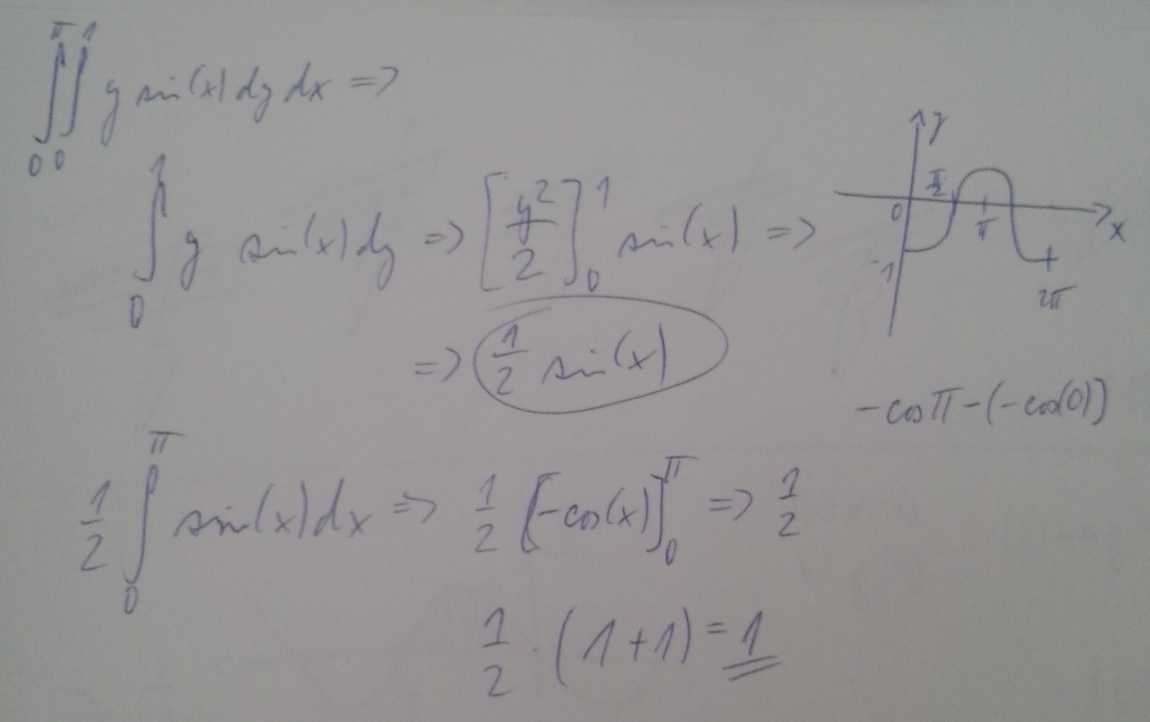 ∫₀^π ∫₀^1 y sin(x) dy dx =>
∫₀^1 y sin(x) dy => [y²/2]₀^1 sin(x) =>
y
π/2
0 π x
-1
2π
=> 1/2 sin(x)
-cos π - (-cos(0))
1/2 ∫₀^π sin(x) dx => 1/2 [-cos(x)]₀^π => 1/2
1/2 · (1+1) = 1